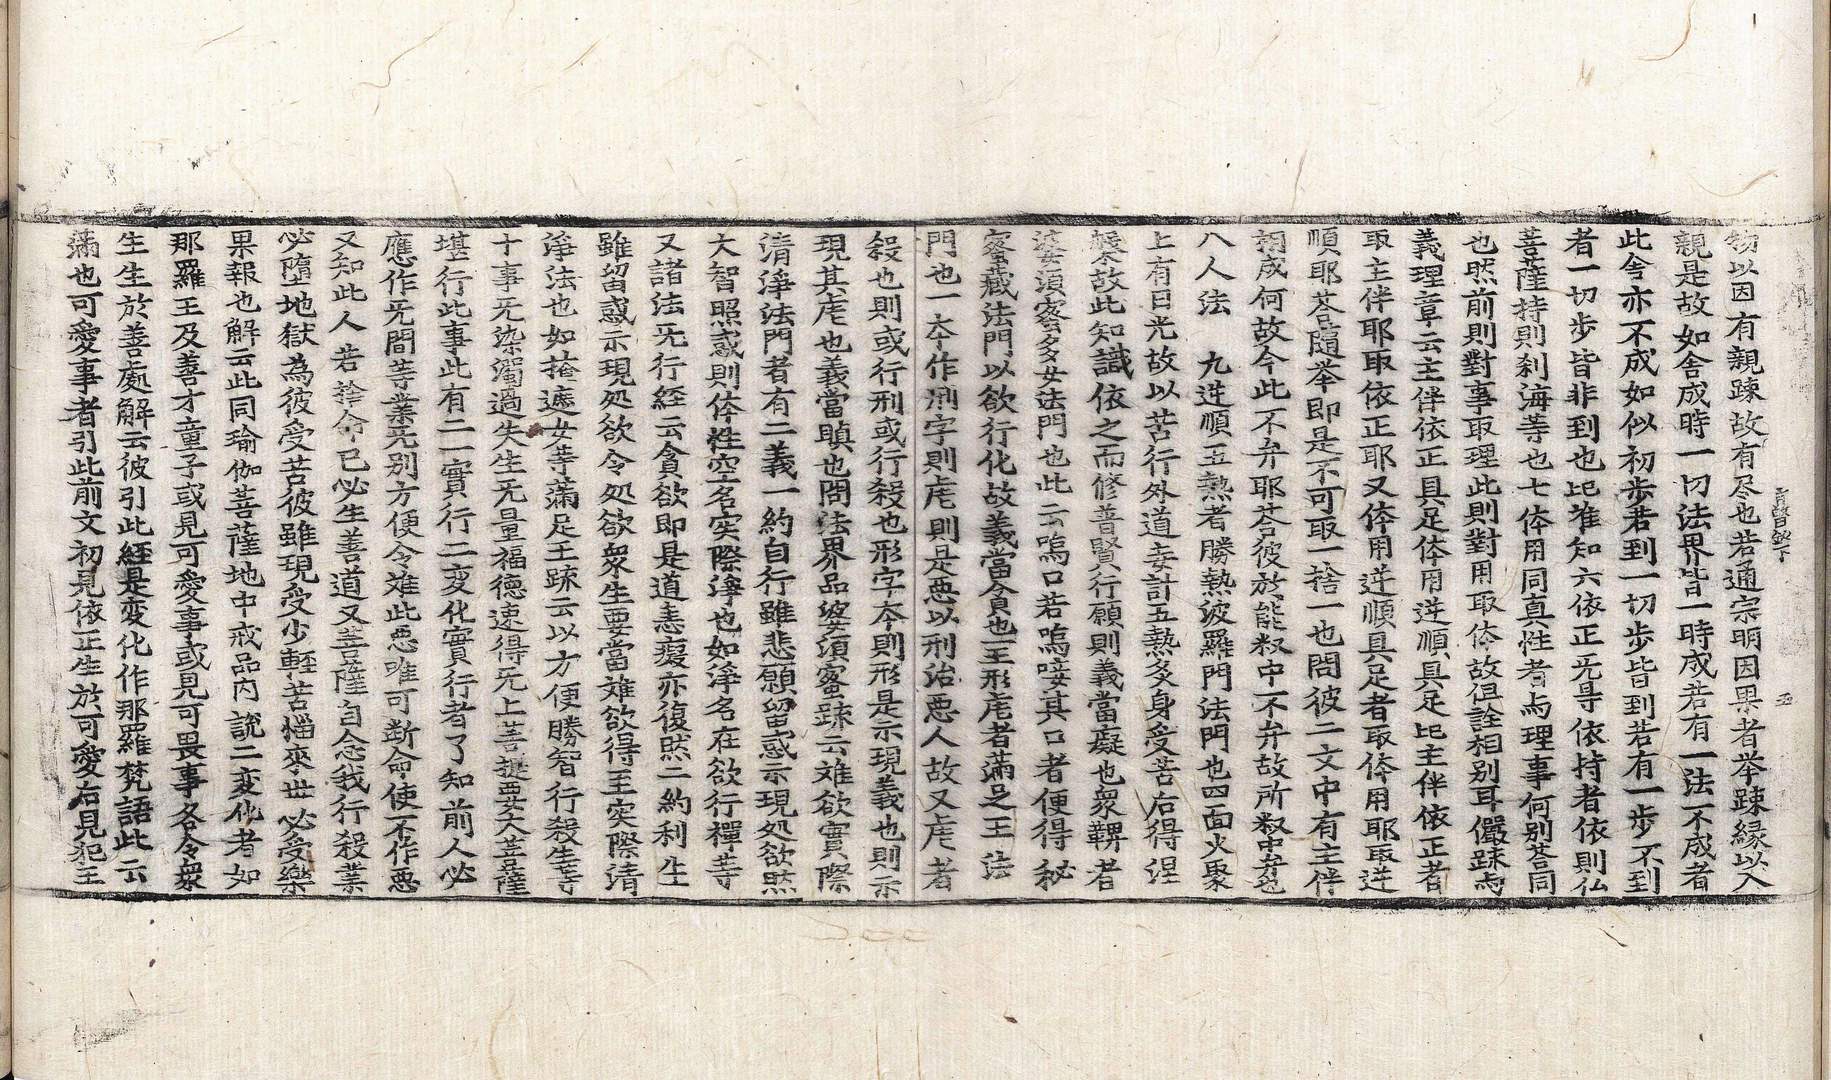 物以因有親踈故有尽也若通宗明因果者举踈縁以入
親是故如舎成時一切法界皆一時成若有一法不成者
此舎亦不成如似初歩若到一切歩皆到若有一歩不到
者一切歩皆非到也比准知六依正旡㝵依持者依則仏
菩薩持則刹海等也七体用同真性者与理事何别荅同
也然前則對事取理此則對用取体故但詮相别耳儼踈与
義理章云主伴依正具足体用逆順具足比主伴依正者
取主伴耶取依正耶又体用逆順具足者取体用耶取逆
順耶荅隨举即是不可取一捨一也問彼二文中有主伴
相成何故今此不弁耶荅彼於能叙中不弁故所叙中
八人法　九逆順五熱者勝熱波羅門法門也四面火聚
上有日光故以苦行外道妄計五熱炙身受苦后得涅
槃故此知識依之而修普賢行願則義當癡也衆鞞者
婆須蜜多女法門也此云嗚口若嗚唼其口者便得秘
蜜蔵法門以欲行化故義當貪也王形虐者滿足王法
門也一夲作刑字則虐則是悪以刑治悪人故又虐者
殺也則或行刑或行殺也形字夲則形是示現義也則示
現其虐也義當瞋也問法界品婆須蜜踈云雖欲實際
清淨法門者有二義一約自行雖悲願留惑示現処欲然
大智照惑則体性空名実際淨也如淨名在欲行禪等
又諸法旡行経云貪欲即是道恚癡亦復然二約利生
雖留惑示現処欲令処欲衆生要當雖欲得至実際清
淨法也如掩遮女等滿足王踈云以方便勝智行殺生等
十事旡染濁過失生旡量福德速得旡上菩提要大菩薩
堪行此事此有二一實行二変化實行者了知前人必
應作旡間等業旡别方便令雖此悪唯可断命使不作悪
又知此人若捨命已必生善道又菩薩自念我行殺業
必墮地獄為彼受苦彼雖現受少輕苦惱来世必受樂
果報也解云此同瑜伽菩薩地中戒品内說二変化者如
那羅王及善才童子或見可愛事或見可畏事各令衆
生生於善處解云彼引此経是変化作那羅梵語此云
滿也可愛事者引此前文初見依正生於可愛后見犯王
五